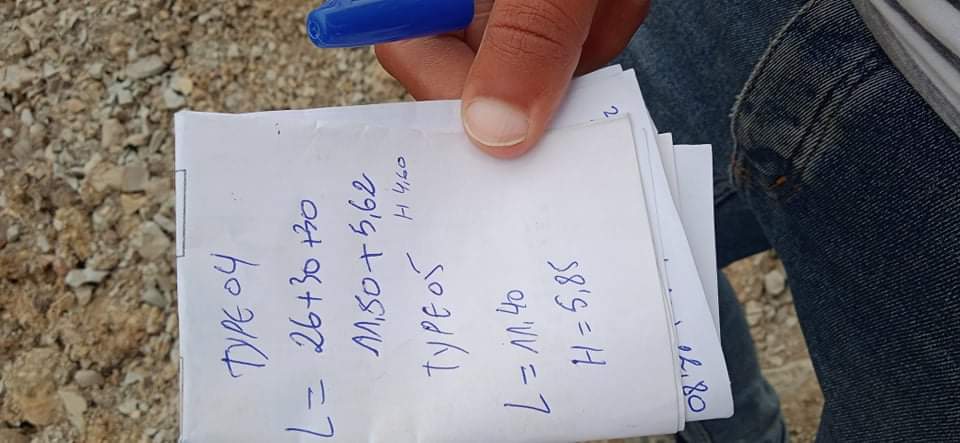 TYPE 04
L = 26+30+30
11,50+5,62
H 4,60
TYPE 05
L = 11,40
H = 5,85